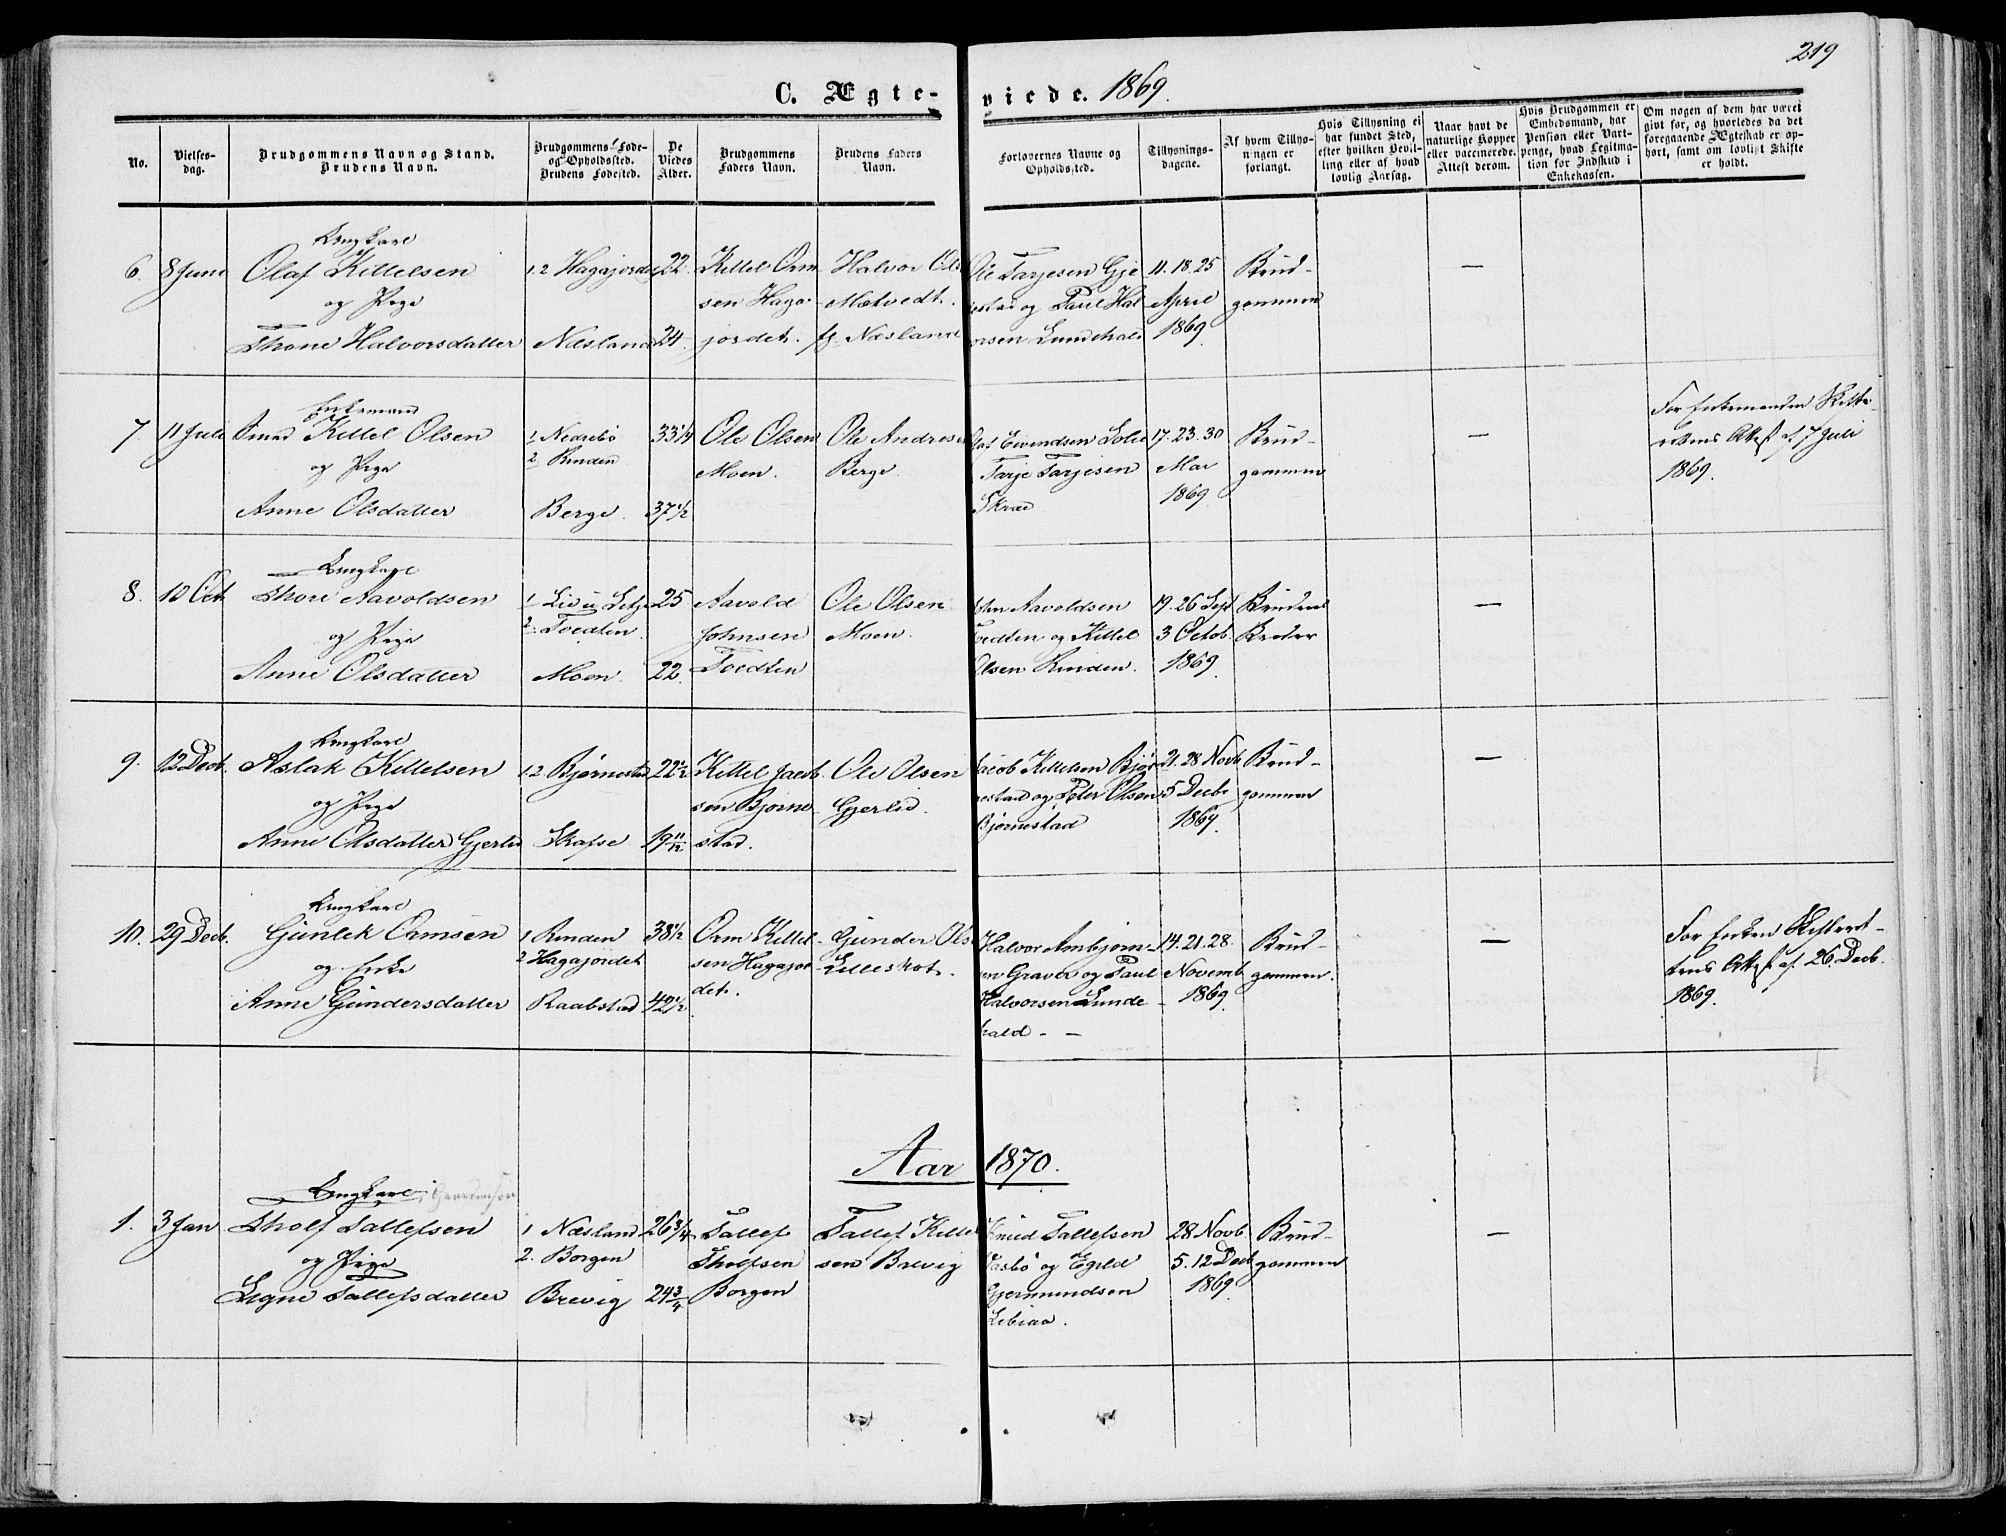 219
C. Ægteviede. 1869.
No.
Vielsesdag.
Brudgommens Navn og Stand.
Brudens Navn.
Brudgommens Føde-
og Opholdssted.
Brudens Fødested.
De
Viedes
Alder.
Brudgommens
Faders Navn.
Brudens Faders
Navn.
Forlovernes Navne og
Opholdssted.
Tillysnings-
dagene.
Af hvem Tillys-
ningen er
forlangt.
Hvis Tillysning ei
har fundet Sted,
efter hvilken Bevil-
ling eller af hvad
lovlig Aarsag.
Naar havt de
naturlige Kopper
eller vaccinerede.
Attest derom.
Hvis Brudgommen er
Embedsmand, har
Pension eller Vart-
penge, hvad Legitima-
tion for Indskud i
Enkekassen.
Om nogen af dem har været
gift før, og hvorledes da det
foregaaende Ægteskab er op-
hørt, samt om lovligt Skifte
er holdt.
6. 8 Juni
Ungkarl
Olaf Kittelsen
og Pige
Thone Halvorsdatter
1.2 Hagajordet
Næsland
22.
24.
Kittel Orm
sen Haga-
jordet.
Halvor Ols
Mætvedt.
Næsland
Ole Tarjesen Gje
estad og Paul Hal
orsen Lundehald
11. 18. 25
April
1869.
Brud-
gommen
—
7. 11 Juli
Enkemand
Smed Kittel Olsen
og Pige
Anne Olsdatter
1 Nedrebø
2 Rinden
Berge.
33 1/4
37 1/2
Ole Olsen
Moen.
Ole Andresen
Berge.
Eivendsen Solie
Tarje Tarjesen
Skræ
17. 23. 30
Mai
1869.
Brud-
gommen
—
For Enkemanden Skifte-
rettens Attest af 7 Juli
1869.
8. 10 Oct
Ungkarl
Thore Aavoldsen
og Pige
Anne Olsdatter
1 Lid i
2 Tvedten.
Moen.
25
22.
Aavold
Johnsen
Tvedten
Ole Olsen
Moen.
John Aavoldsen
Tvedten og Kittel
Olsen Rinden.
19. 26 Sept
3 Octob.
1869.
Brudens
Broder
—
9. 12 Decb.
Ungkarl
Aslak Kittelsen
og Pige
Anne Olsdatter Gjerlid
1.2 Bjørnestad
Skafse
22 1/2
19 11/12
Kittel Jacob.
sen Bjørne-
stad.
Ole Olsen
Gjerlid.
Jacob Kittelsen Bjør
nestad og Peter Olsen
Bjørnestad
21. 28 Novb
5 Decbr
1869.
Brud-
gommen
—
10. 29 Decb.
Ungkarl
Gunlek Ormsen
og Enke
Anne Gundersdatter
1 Rinden
2 Hagajordet
Raabstad
38 1/2
42 1/2
Orm Kittel-
sen Hagajor-
det.
Gunder Ols
Lilleskot.
Halvor Ambjørn-
sen Graver og Paul
Halvorsen Lunde-
hald - —
14. 21. 28.
Novemb.
1869.
Brud-
gommen.
—
For Enken Skifteret-
tens Attest af 26. Decb.
1869.
Aar 1870.
1. 3 Jan
Ungkarl
Tholf Tallefsen
og Pige
Signe Tallefsdatter
1 Næsland
2. Borgen
Brevig
26 3/4
24 3/4
Tallef
Tholfsen
Borgen
Tallef Kittel
sen Brevig
Knud Tallefsen
Vasbø og Egeld
Gjermundsen
Libraa.
28 Novb.
5. 12 Decb.
1869.
Brud-
gommen
—